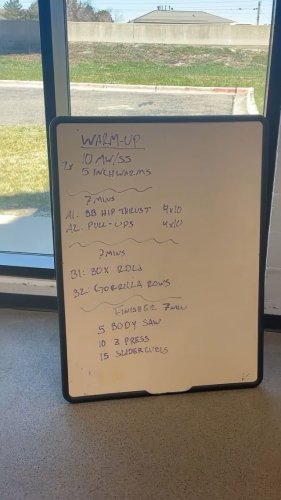 WARM-UP
2x 10 MW/SS
5 INCHWORMS
7 MINS
A1: BB HIP THRUST 4x10
A2: PULL-UPS 4x10
7MINS
B1: BOX RDLs
B2: GORRILLA ROWS
FINISHER 7 MIN
5 BODY SAW
10 Z PRESS
15 SLIDER CURLS